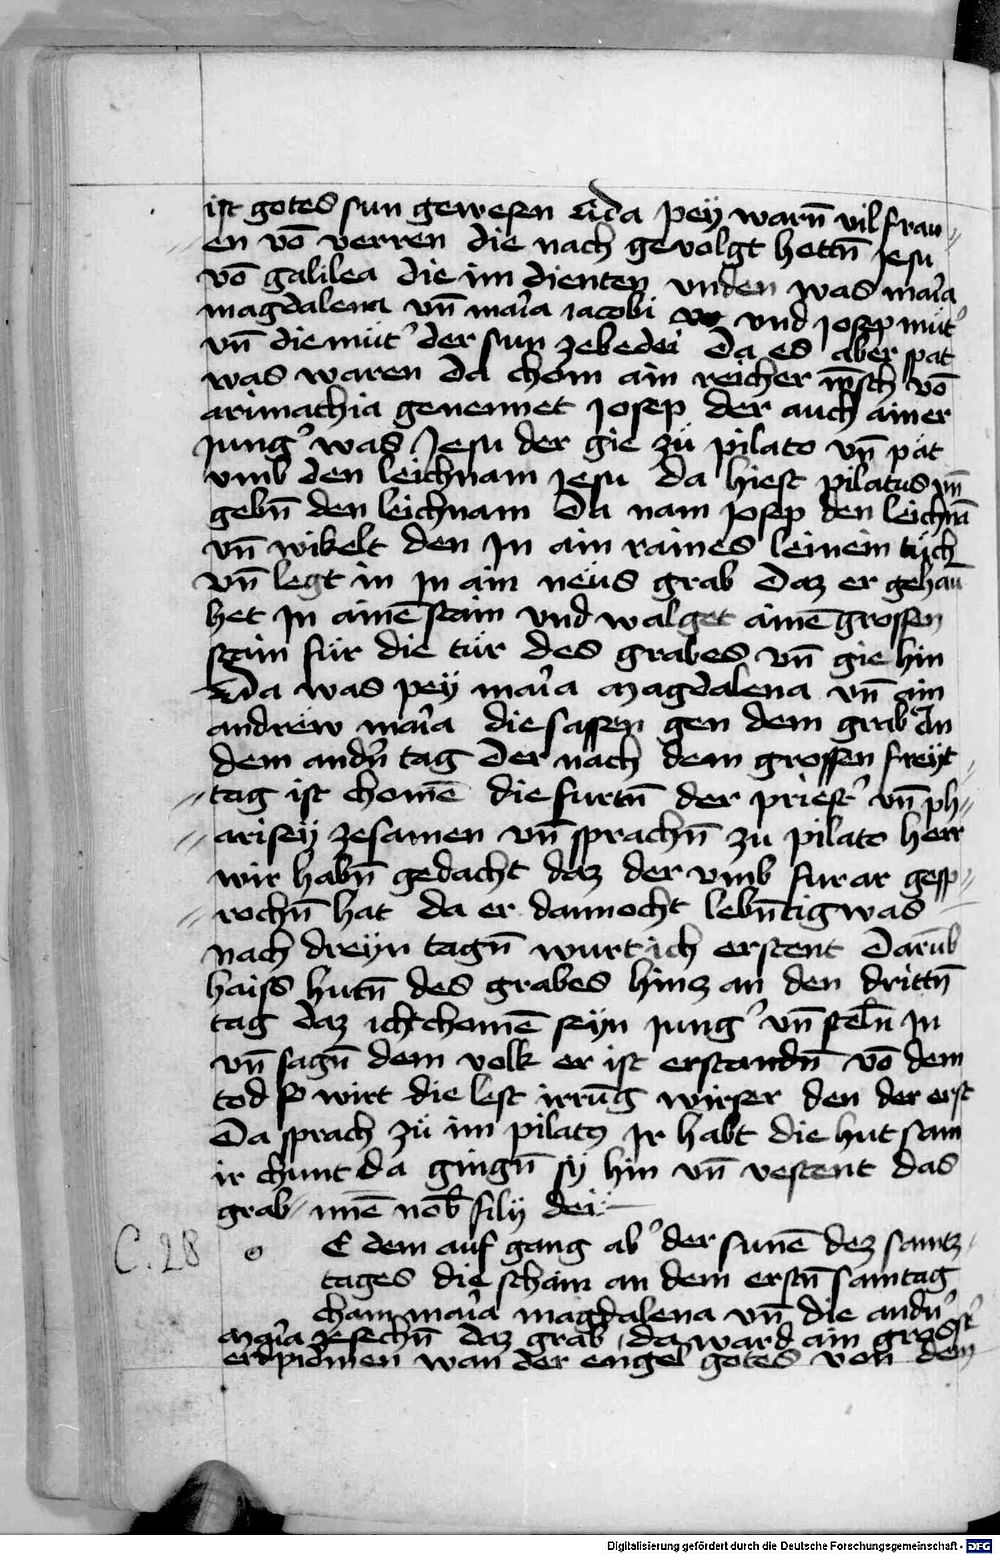 ist gotes sun gewesen Da pey warn̄ vil frau⸗
en vō verren die nach gevolgt hettn̄ Jesu
vō galilea die im dienten vnden was mar̄ia
magdalena vn̄ mar̄ia iacobi und Josep müt'
vn̄ die müt' der sun zebedei Da es aber spat
was waren Da chom ain reicher mēsch vō
arimathia genennet Josep der auch ainer
Jung' was Jesu der gie zü pilato vn̄ pat
vmb den leichnam Jesu da hiest pilatus im̄
gebn̄ den leichnam Da nam Josep den leichnā
vn̄ wikelt den Jn ain raines leinein tüch
vn̄ legt in Jn ain neüs grab Daz er gehaū
het Jn ainē stain vnd walget ainē grossen
stain für die tür des grabes vn̄ gie hin
Da was pey mar̄ia magdalena vn̄ ain
andrew mar̄ia die sassen gen dem grab An
dem andn̄ tag Der nach dem grossen freyt⸗
tag ist chomē die furtn̄ der priest' vn̄ ph⸗
arisey zesamen vn̄ sprachn̄ zu pilato herr
wir habn̄ gedacht daz der vmb furar gesp⸗
rochn̄ hat da er dannocht lebn̄tig was
nach dreyn tagn̄ wurt ich erstent Darūb
haiss hutn̄ des grabes hinz an den drittn̄
tag daz icht chomē seyn Jung' vn̄ steln̄ Jn
vn̄ sagn̄ dem volk er ist erstandn̄ vō dem
tod so wirt die lest irrūg wirser den der erst
Da sprach zü im pilatus Jr habt die hut sam
ir chunt da gingn̄ sy hin vn̄ vestent das
grab filij dei
C. 28 E dem auf gang ab' der sunē dez samtz⸗
tages die scham an dem erstn̄ samtag
cham mar̄ia magdalena vn̄ die andn̄'
mar̄ia zesechn̄ daz grab da ward ain grosser
erdpidmen wan der engel gotes von dem
Digitalisierung gefördert durch die Deutsche Forschungsgemeinschaft - DFG